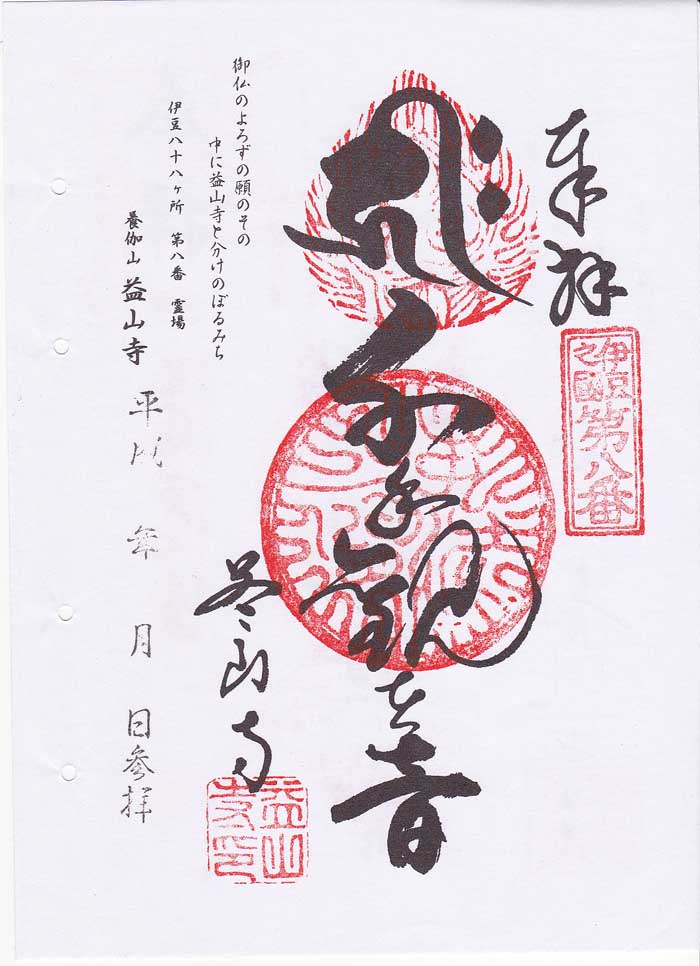 奉拝
伊豆之國 第八番
千手観世音
益山寺
益山寺印
御仏のよろずの願のその
中に益山寺と分けのぼるみち
伊豆八十八ヶ所 第八番 霊場
養伽山 益山寺 平成 年 月 日参拝